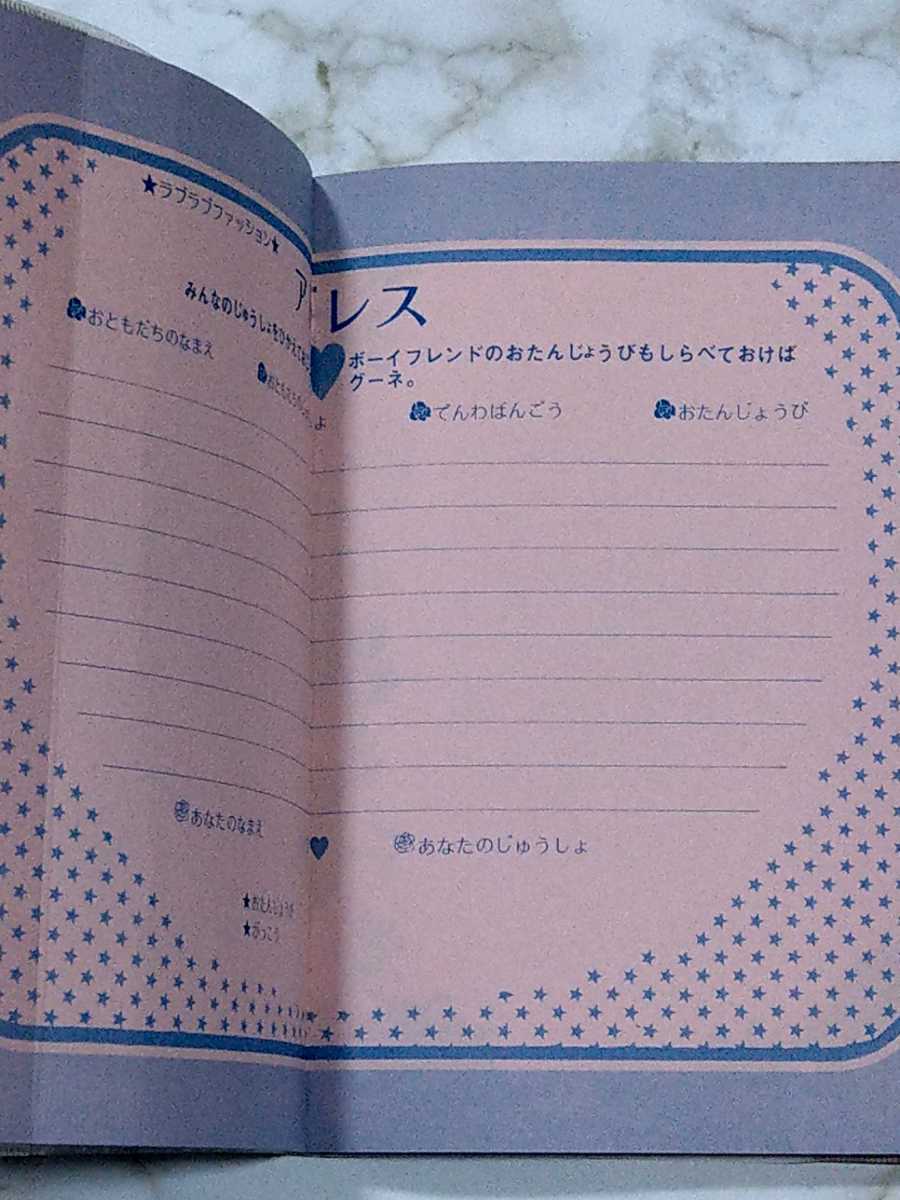 ★ラブラブファッション★
アドレス
みんなのじゅうしょをひかえてお
ボーイフレンドのおたんじょうびもしらべておけば
グーネ。
おともだちのなまえ
でんわばんごう
おたんじょうび
あなたのなまえ
あなたのじゅうしょ
★おたんじょうび
★がっこう